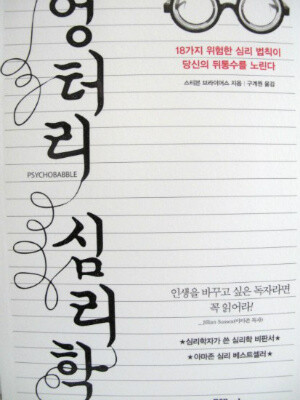 엉터리
PSYCHOBABBLE
심리학
18가지 위험한 심리 법칙이
당신의 뒤통수를 노린다
스티븐 브라이어스 지음 • 구계원 옮김
인생을 바꾸고 싶은 독자라면
꼭 읽어라!
★심리학자가 쓴 심리학 비판서★
★아마존 심리 베스트셀러★